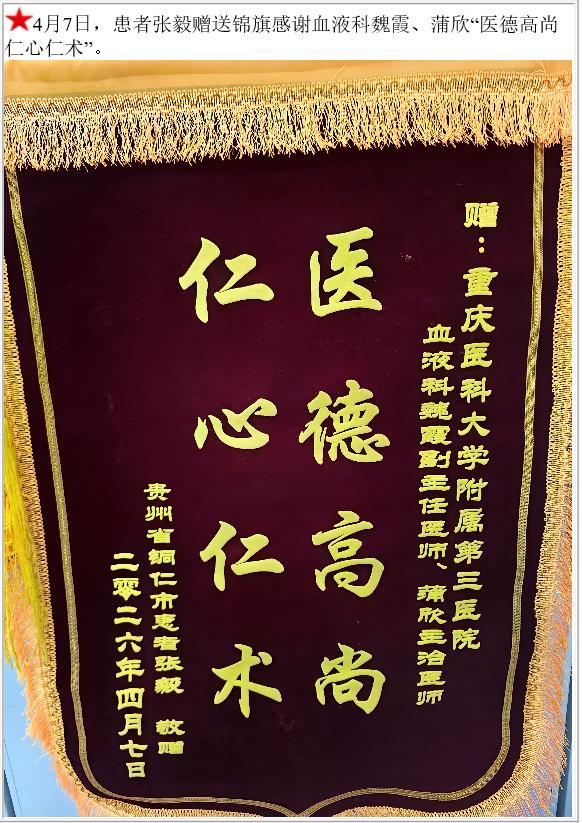 4月7日，患者张毅赠送锦旗感谢血液科魏霞、蒲欣“医德高尚
仁心仁术”。
赠：重庆医科大学附属第三医院
血液科魏霞副主任医师、蒲欣主治医师
医德高尚
仁心仁术
贵州省铜仁市患者张毅 敬赠
二零二六年四月七日